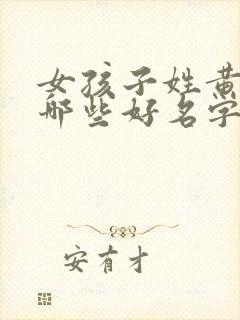 女孩子姓黄
哪些好名字
安有才